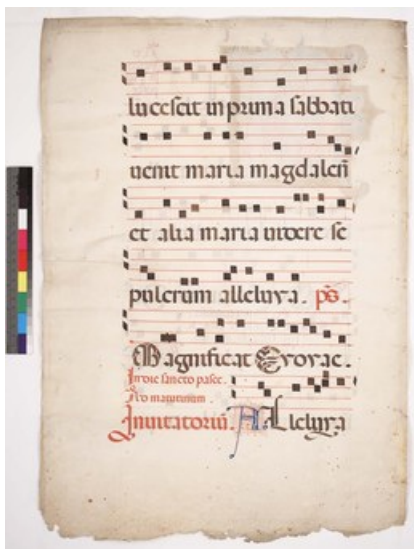 lucescit in prima sabbati
uenit maria magdaleñ
et alia maria uidere se
pulcrum alleluya. ps̄.
Magnificat Euouae.
In die sancto pasce.
Ad matutinum
Inuitatoriū. Alleluya